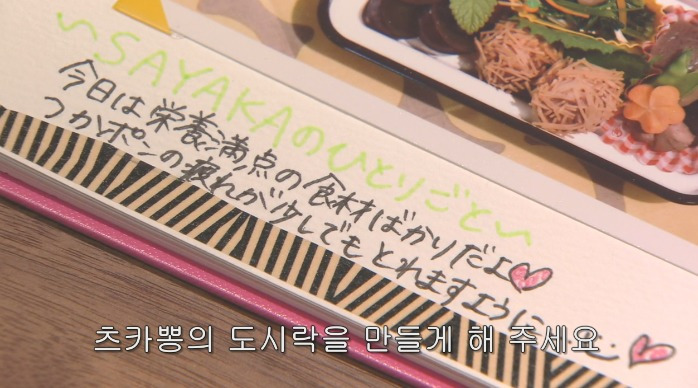 ~SAYAKAのひとりごと~
今日は栄養満点の食材ばかりだよ♡
つかポンの疲れが少しでもとれますように…♡
츠카뽕의 도시락을 만들게 해 주세요